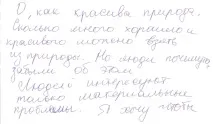 О, как красива природа.
Сколько много хорошего и
красивого можно взять
из природы. Но люди почему
забыли об этом
Людей интересуют
только материальные
проблемы. Я хочу чтобы